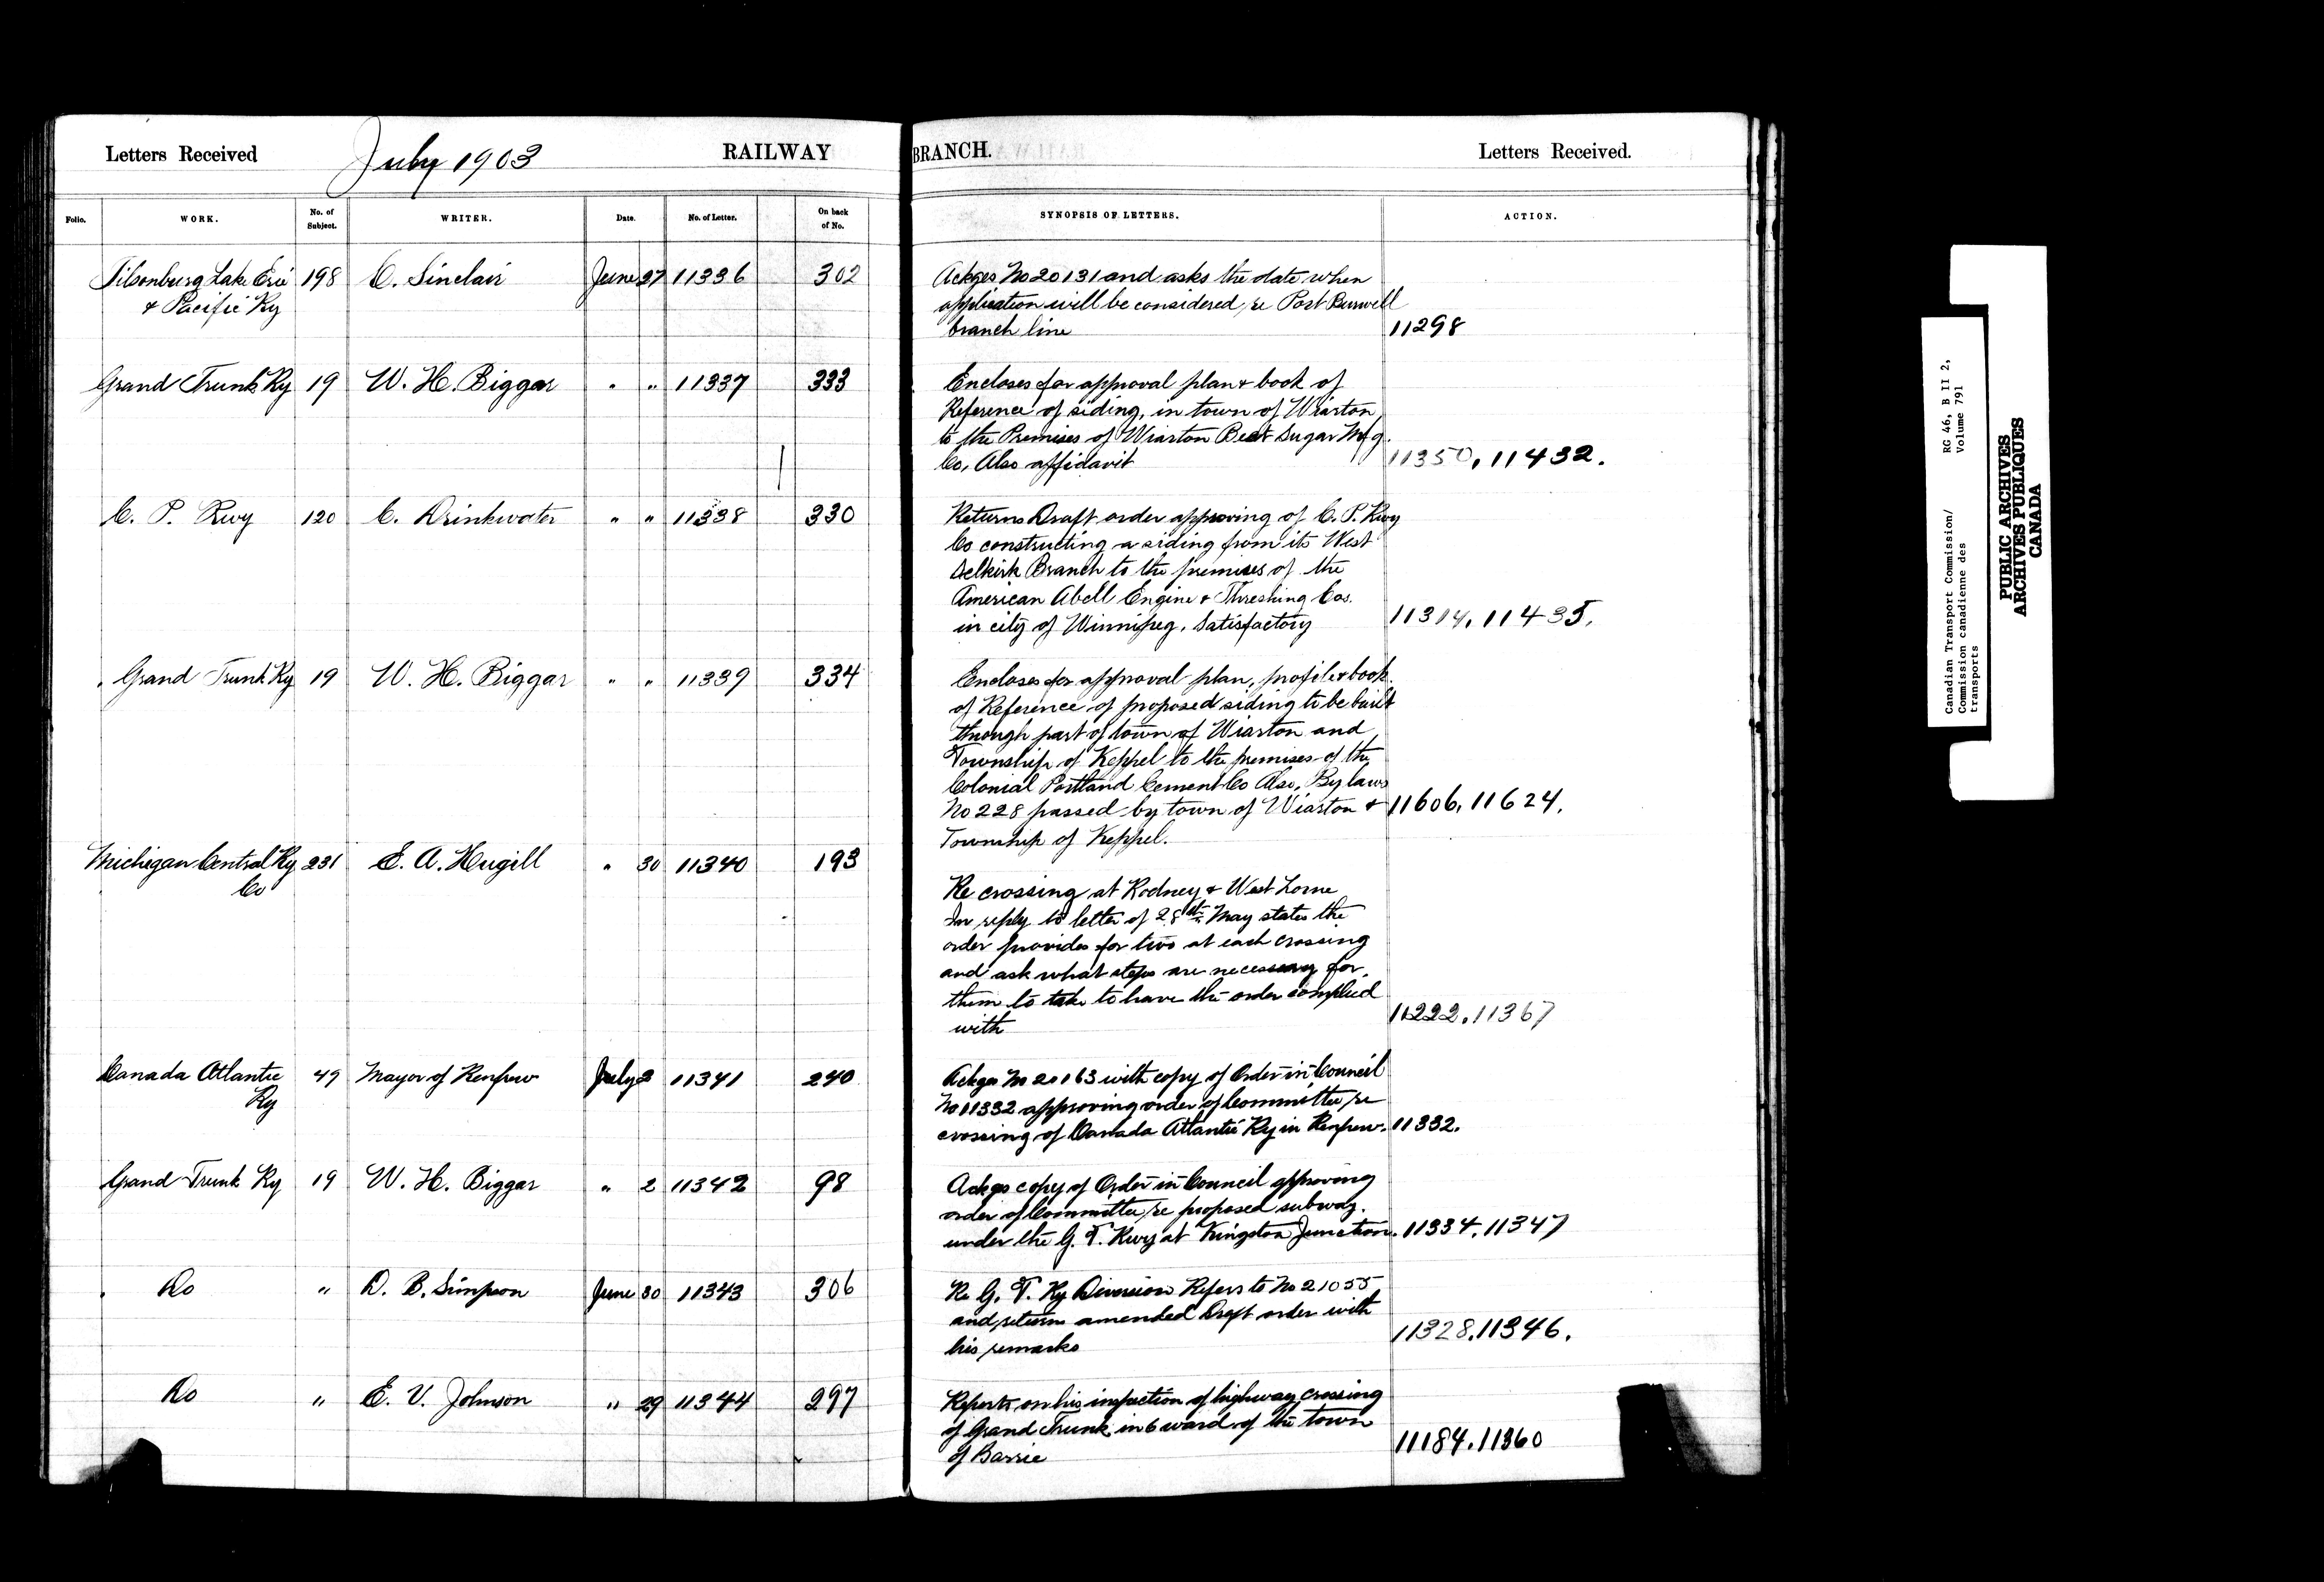 Letters Received July 1903 RAILWAY BRANCH. Letters Received.
Folio. WORK. No. of Subject. WRITER. Date. No. of Letter. On back of No. SYNOPSIS OF LETTERS. ACTION.
Tilsonburg Lake Erie 198 C. Sinclair June 27 11336 302 Ackges No 20131 and asks the date when
& Pacific Ry application will be considered, re Port Burwell
branch line 11298
Grand Trunk Ry 19 W. H. Biggar " " 11337 333 Encloses for approval plan & book of
Reference of siding, in town of Wiarton
to the Premises of Wiarton Beet Sugar Mfg.
Co, Also affidavit 11350, 11432.
C. P. Rwy 120 C. Drinkwater " " 11338 330 Returns Draft order approving of C. P. Rwy
Co constructing a siding from its West
Selkirk Branch to the premises of the
American Abell Engine & Threshing Cos.
in city of Winnipeg. Satisfactory 11314, 11435.
Grand Trunk Ry 19 W. H. Biggar " " 11339 334 Encloses for approval plan, profile & book
of Reference of proposed siding to be built
through part of town of Wiarton and
Township of Keppel to the premises of the
Colonial Portland Cement Co Also, By laws
No 228 passed by town of Wiarton & 11606, 11624.
Township of Keppel.
Michigan Central Ry 231 E. A. Hugill " 30 11340 193
Co
Re crossing at Rodney & West Lorne
In reply to letter of 28th May states the
order provides for two at each crossing
and ask what steps are necessary for
them to take to have the order complied
with 11222, 11367
Canada Atlantic 49 Mayor of Renfrew July 2 11341 240 Ackges No 20163 with copy of Order-in-Council
Ry No 11332 approving order of Committee, re
crossing of Canada Atlantic Ry in Renfrew. 11332.
Grand Trunk Ry 19 W. H. Biggar " 2 11342 98 Ackges copy of Order-in-Council approving
order of Committee, re proposed subway
under the G. T. Rwy at Kingston Junction. 11334, 11347
Do " D. B. Simpson June 30 11343 306 Re G. T. Ry Diversion Refers to No 21055
and returns amended Draft order with
his remarks 11328, 11346.
Do " E. V. Johnson " 29 11344 297 Reports on his inspection of highway crossing
of Grand Trunk in 6 ward of the town
of Barrie 11184, 11360
Canadian Transport Commission/ RG 46, B II 2,
Commission canadienne des Volume 791
transports
PUBLIC ARCHIVES
ARCHIVES PUBLIQUES
CANADA